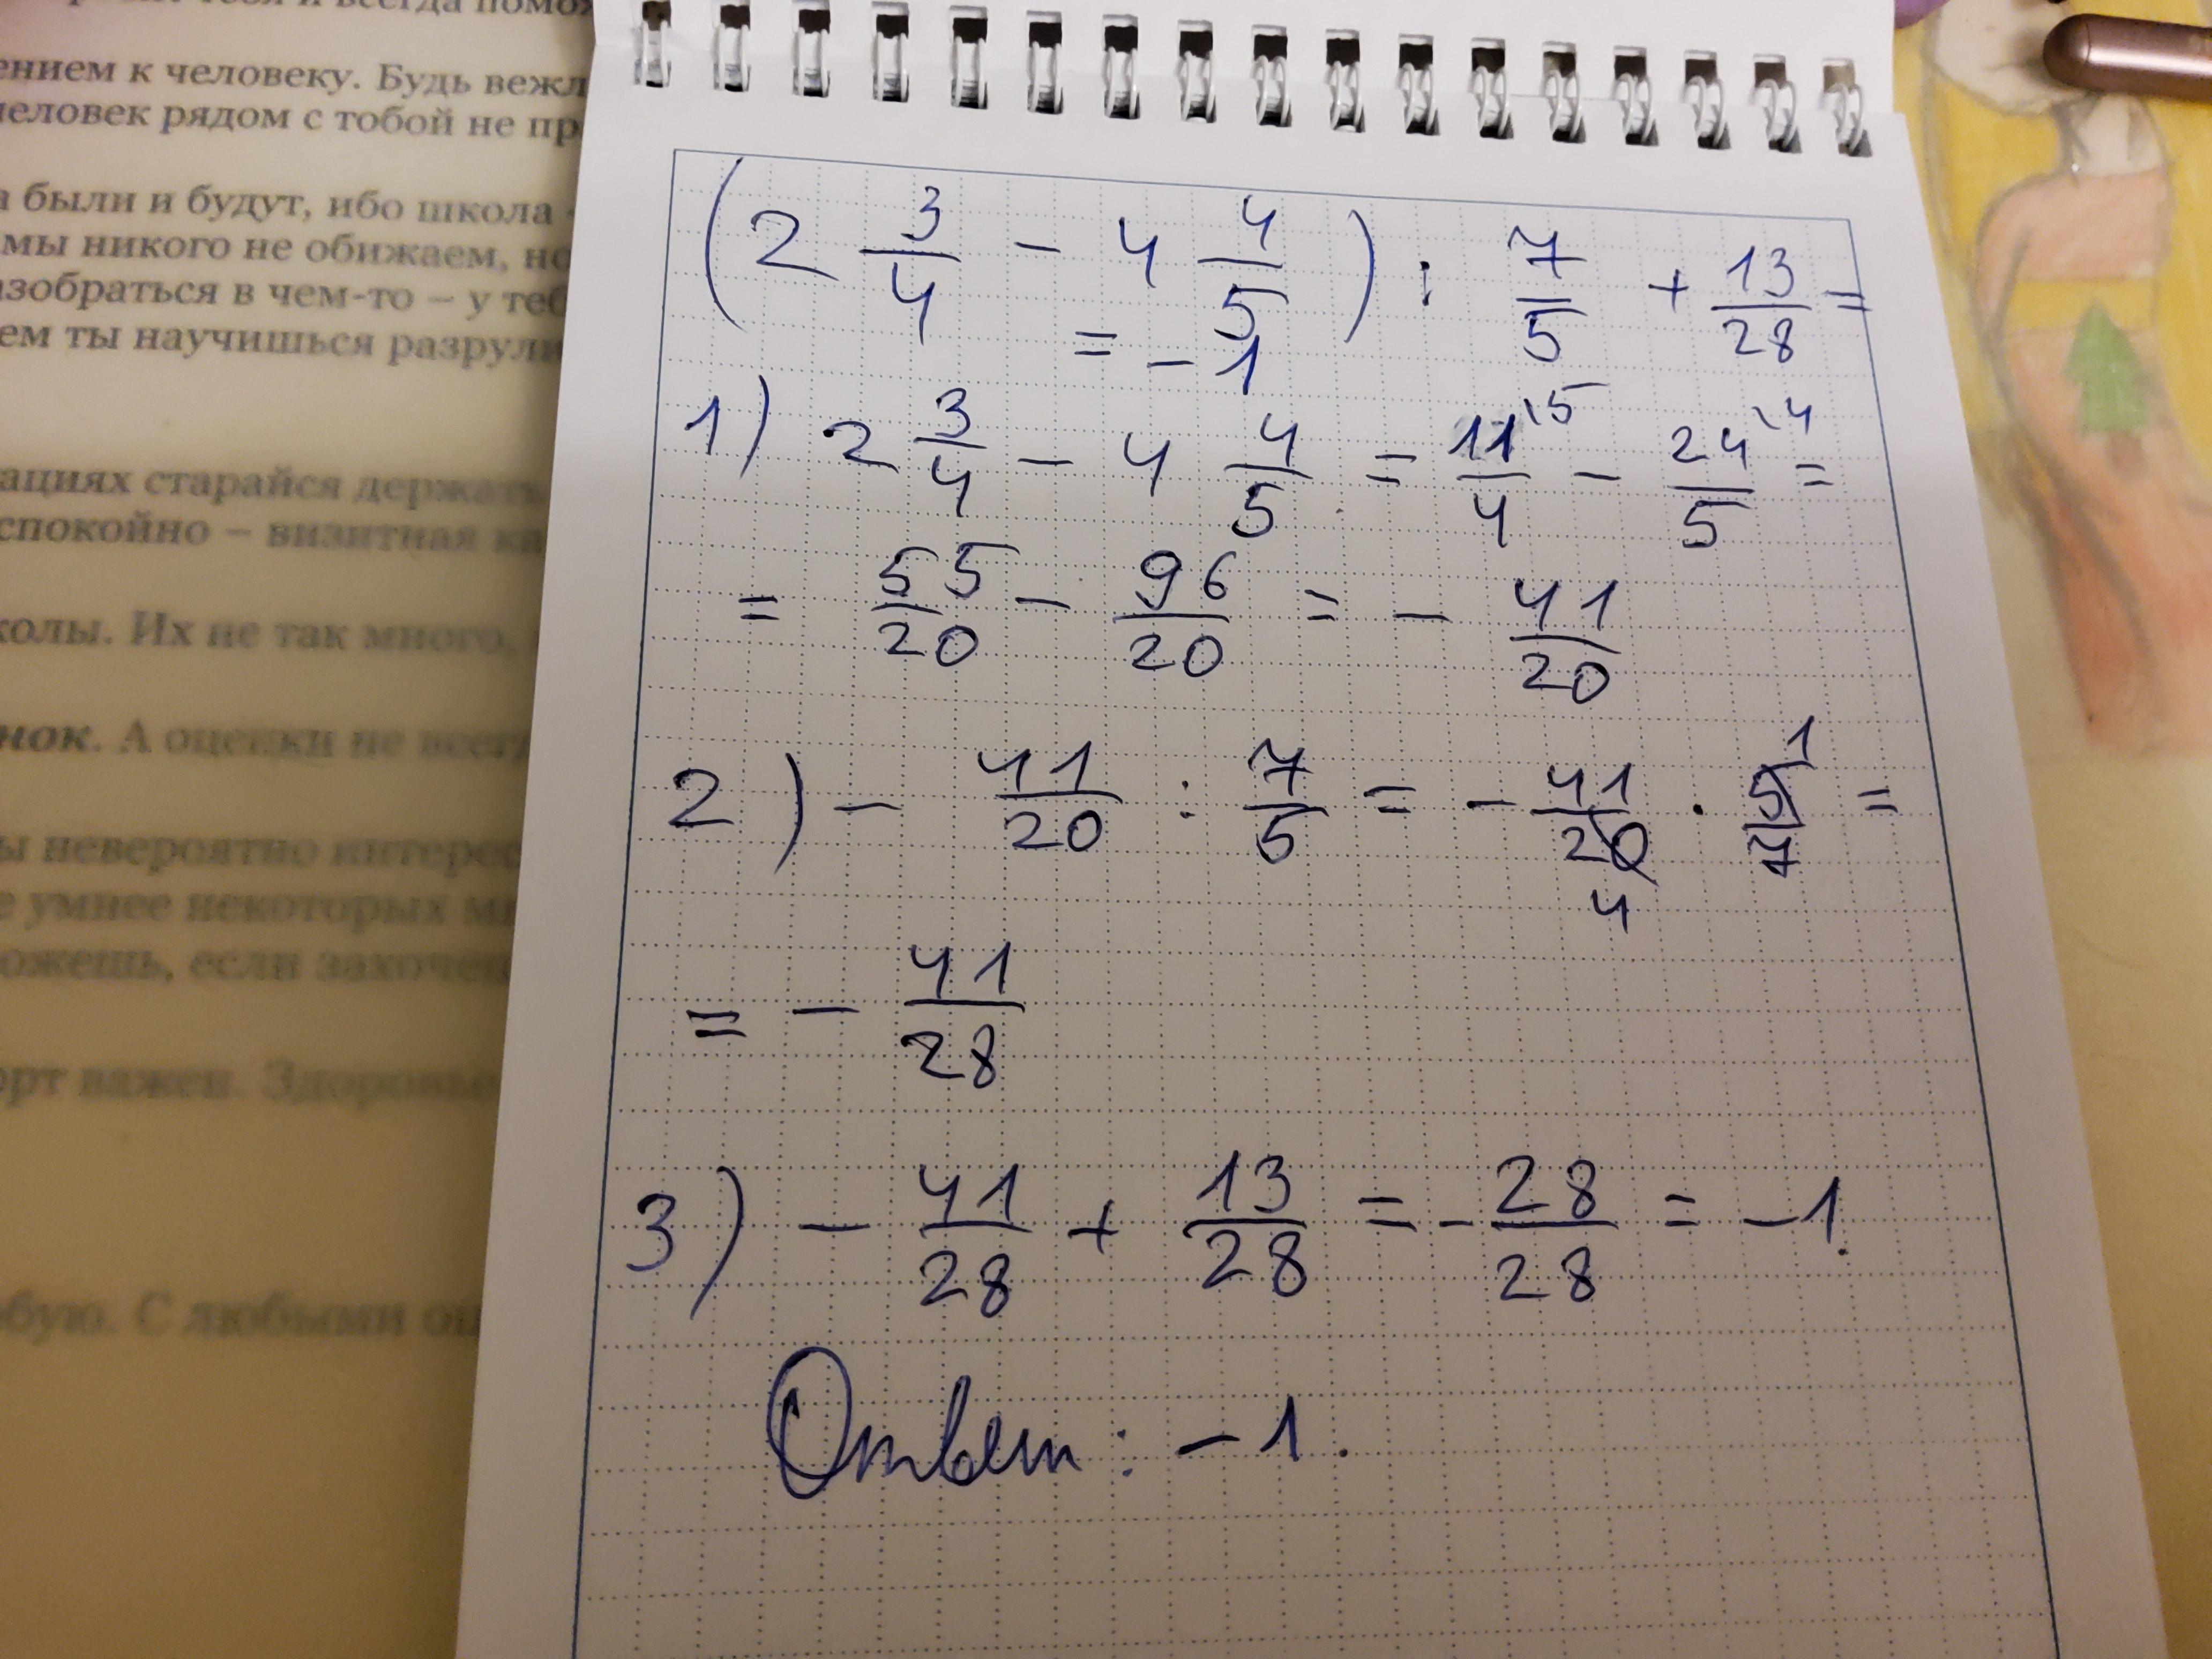 рит тебя и всегда помож
ением к человеку. Будь вежл
человек рядом с тобой не пр
а были и будут, ибо школа -
мы никого не обижаем, но
азобраться в чем-то – у теб
ем ты научишься разрули
ациях старайся держать
спокойно – визитная ка
колы. Их не так много,
нок. А оценки не всегд
ы невероятно интерес
е умнее некоторых м
ожешь, если захочеш
орт важен. Здоровье
обую. С любыми оц
(2 3/4 - 4 4/5) : 7/5 + 13/28 =
= -1
1) 2 3/4 - 4 4/5 = 11\5/4 - 24\4/5 =
= 55/20 - 96/20 = - 41/20
2) - 41/20 : 7/5 = - 41/20 4 · 5 1/7 =
= - 41/28
3) - 41/28 + 13/28 = - 28/28 = -1.
Ответ: -1.